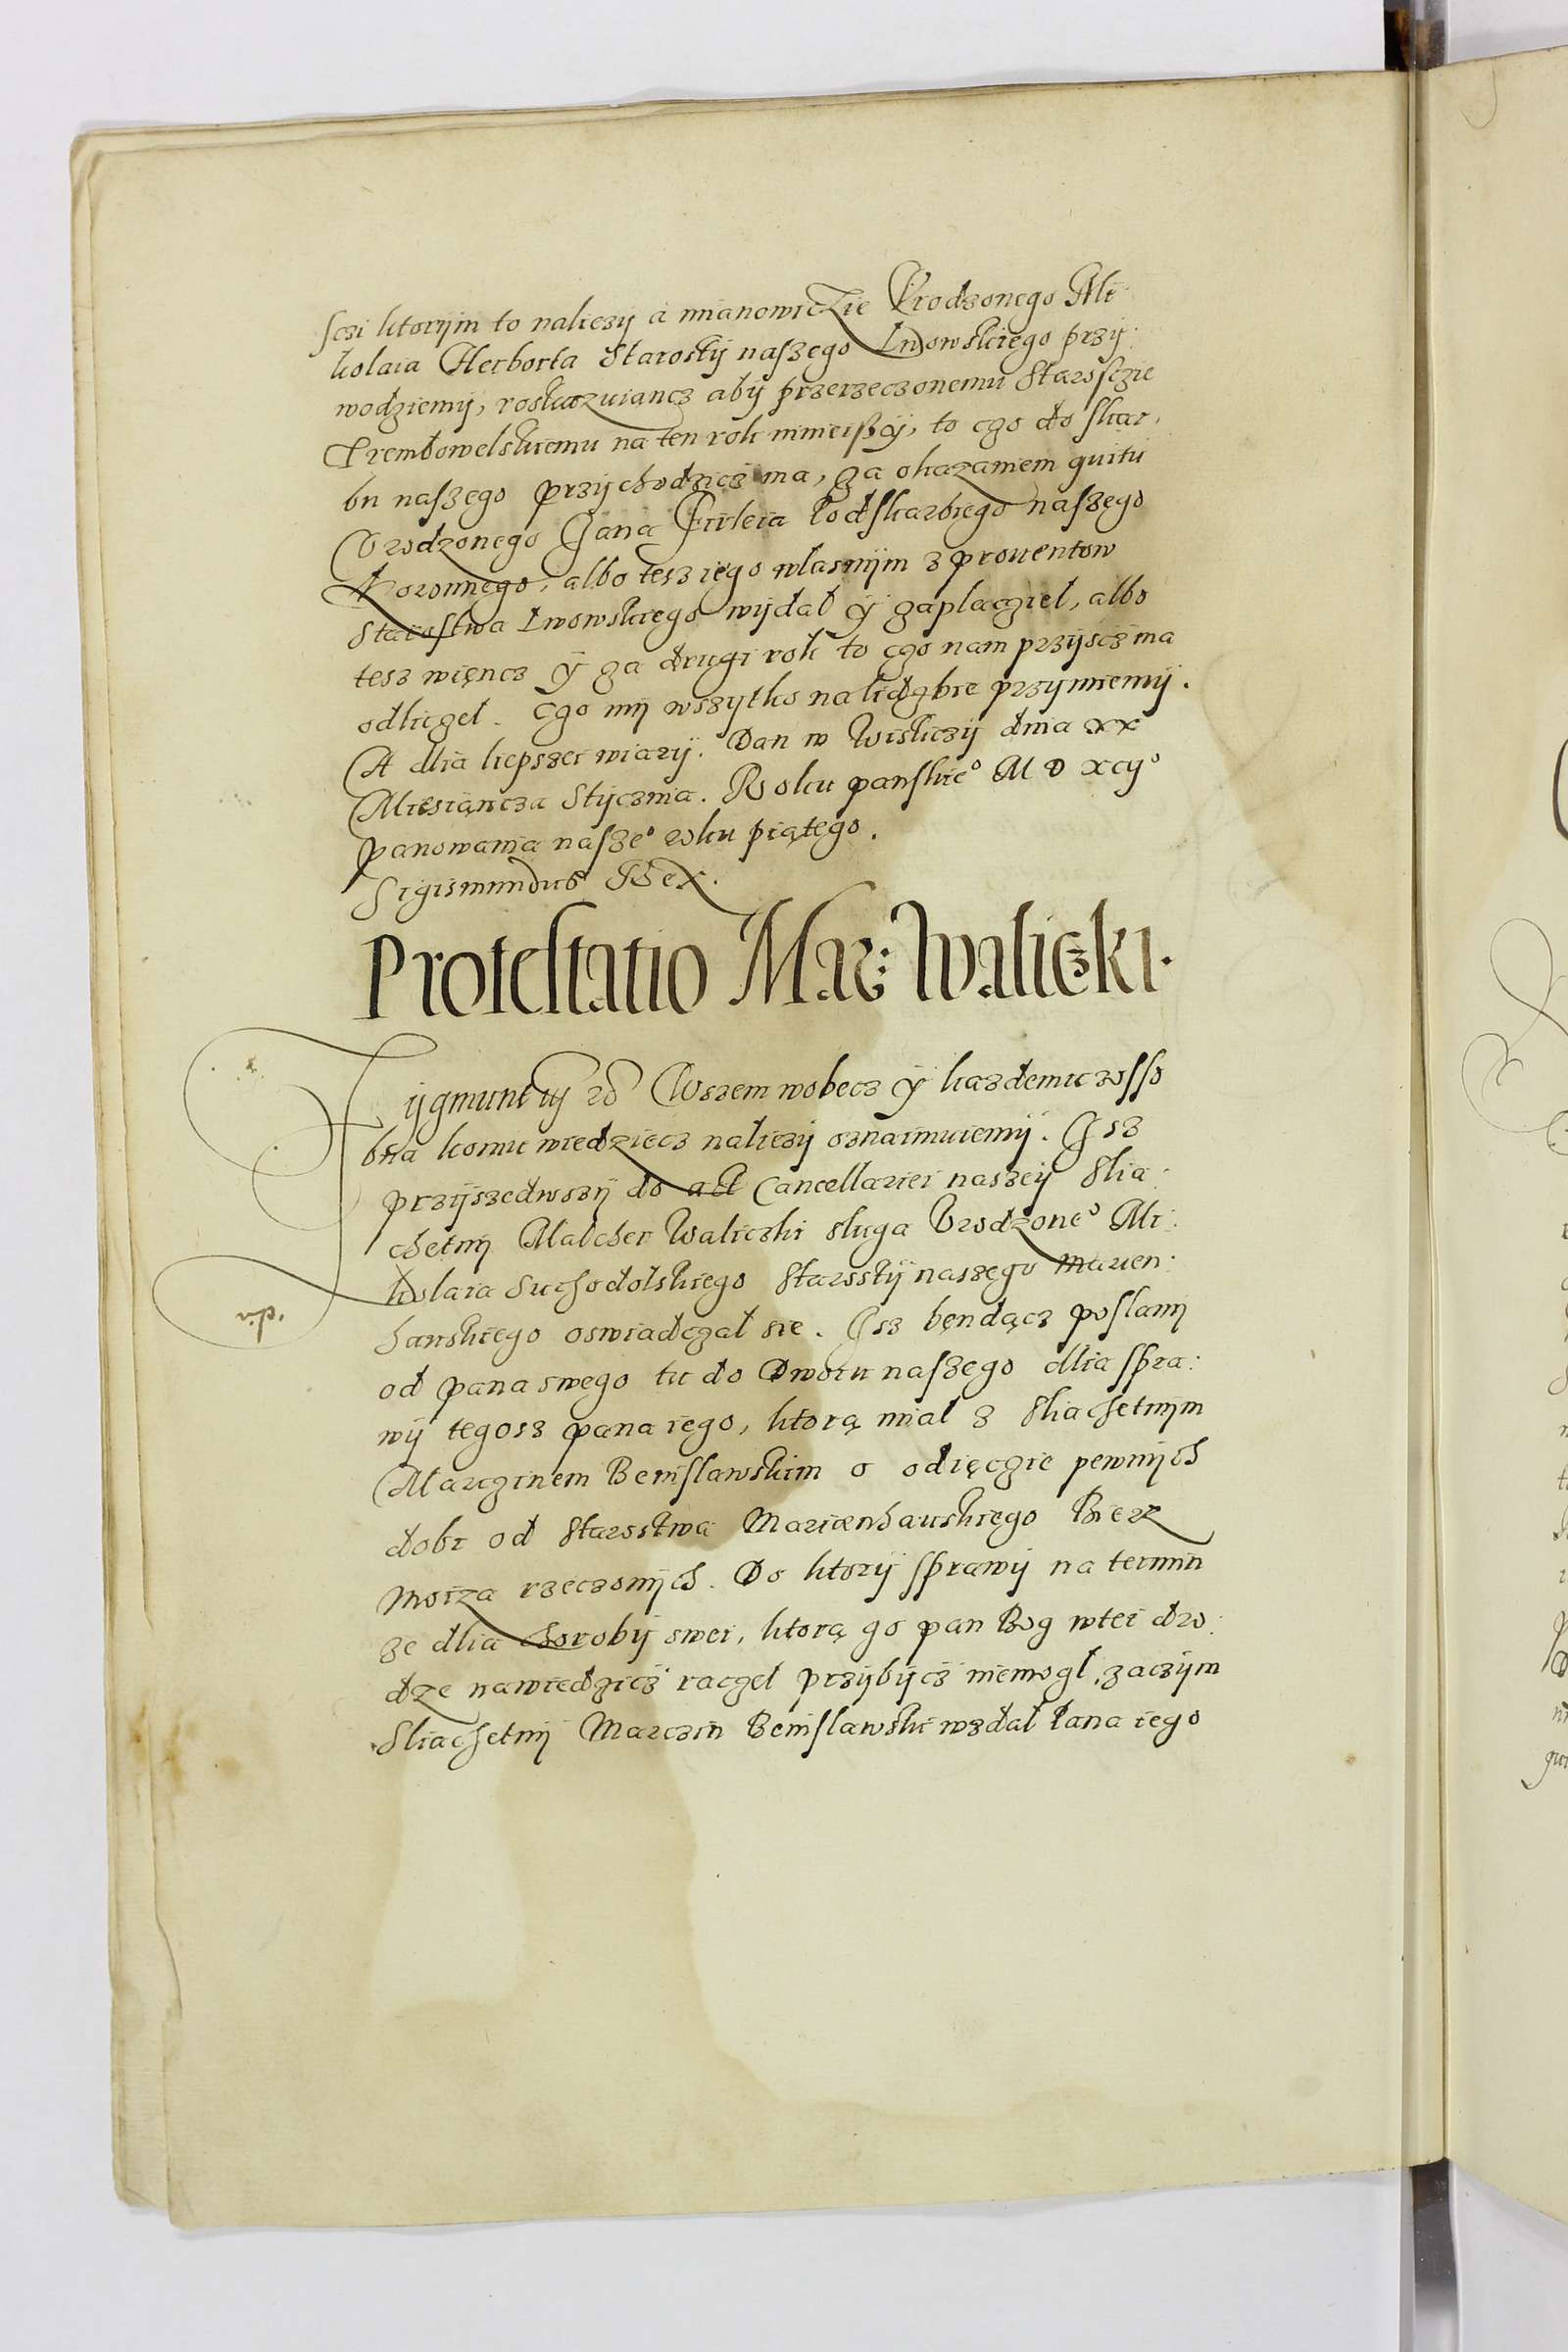 sczi ktorym to nalieży a mianowiczie Urodzonego Mi:
kolaia Herborta Starosty naszego Lwowskiego przy:
wodziemy, roskazuiancz aby przerzeczonemu Starosczie
Trembowelskiemu na ten rok ninieiszÿ, to czo do skar:
bu naszego przychodzicz ma, za okazaniem quitu
Urodzonego Jana Firleia Podskarbiego naszego
Koronnego, albo tesz iego wlasnym z prouentow
Starostwa Lwowskiego wydal ÿ zaplacziel, albo
tesz więncz ÿ za drugi rok to czo nam przyscz ma
odliczel. Czo my wszytko na lidczbie przymiemy.
A dlia liepszei wiary. Dan w Wisliczy dnia xx
Miesiancza Stycznia. Roku panskie° M D xcij°
panowania nasze° roku piątego.
Sigismundus Rex.
Protestatio Mar: Waliczki.
Zygmunt iij etc Wszem wobecz ÿ kazdemu zosso
bna komu wiedziecz naliezy oznaimuiemy. Isz
przyszedwszy do act Cancellariei naszey Slia:
chetny Malcher Waliczki sluga Urodzone° Mi:
kolaia Suchodolskiego Starosty naszego marien:
hauskiego oswiadczal sie. Isz bendącz poslany
od pana swego tu do Dworu naszego dlia spra:
wy tegosz pana iego, ktorą mial z Sliachetnym
Marczinem Benislawskim o odięczie pewnych
dobr od Starostwa Marienhauskiego Berz
moiza rzeczonych. Do ktory sprawy na termin
ze dlia choroby swei, ktorą go pan Bog wtei dro:
dze nawiedzicz raczel przybycz niemogl, zaczym
Sliachetny Marczin Benislawski wzdal Pana iego